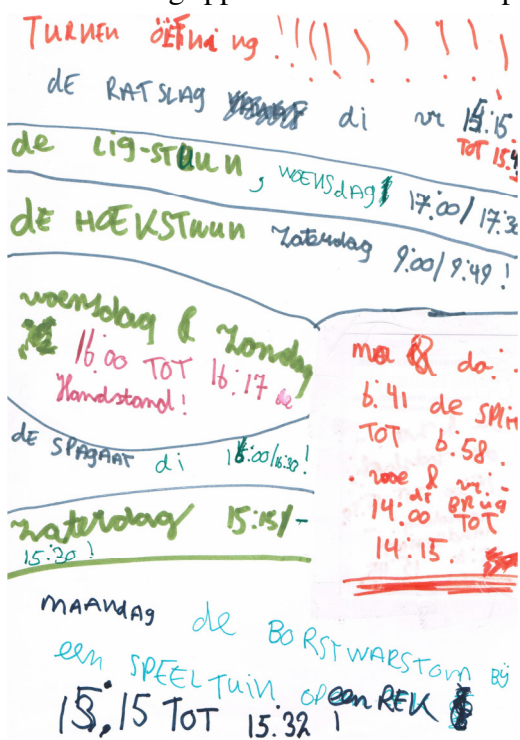 TURNEN ÖEFnIng !!!!!!!!
dE RATSLAG di vr 15:15
TOT 15:4
de Lig-STEUUn, WOENSdAG 17:00/17:30
dE HOEKSTUUn Zaterdag 9:00/9:49!
woensdag & Zondag
16:00 TOT 16:17 de
Handstand!
dE SPAGAAT di 16:00/16:30!
zaterdag 15:15/-
15:30!
ma & do:
6.41 de SPLIT
TOT 6.58.
woe & vr:
14:00 de BRUG TOT
14:15.
MAANdAG de BORSTWARSTOM BIJ
een SPEELTUIN OP een REK
15:15 TOT 15.32!